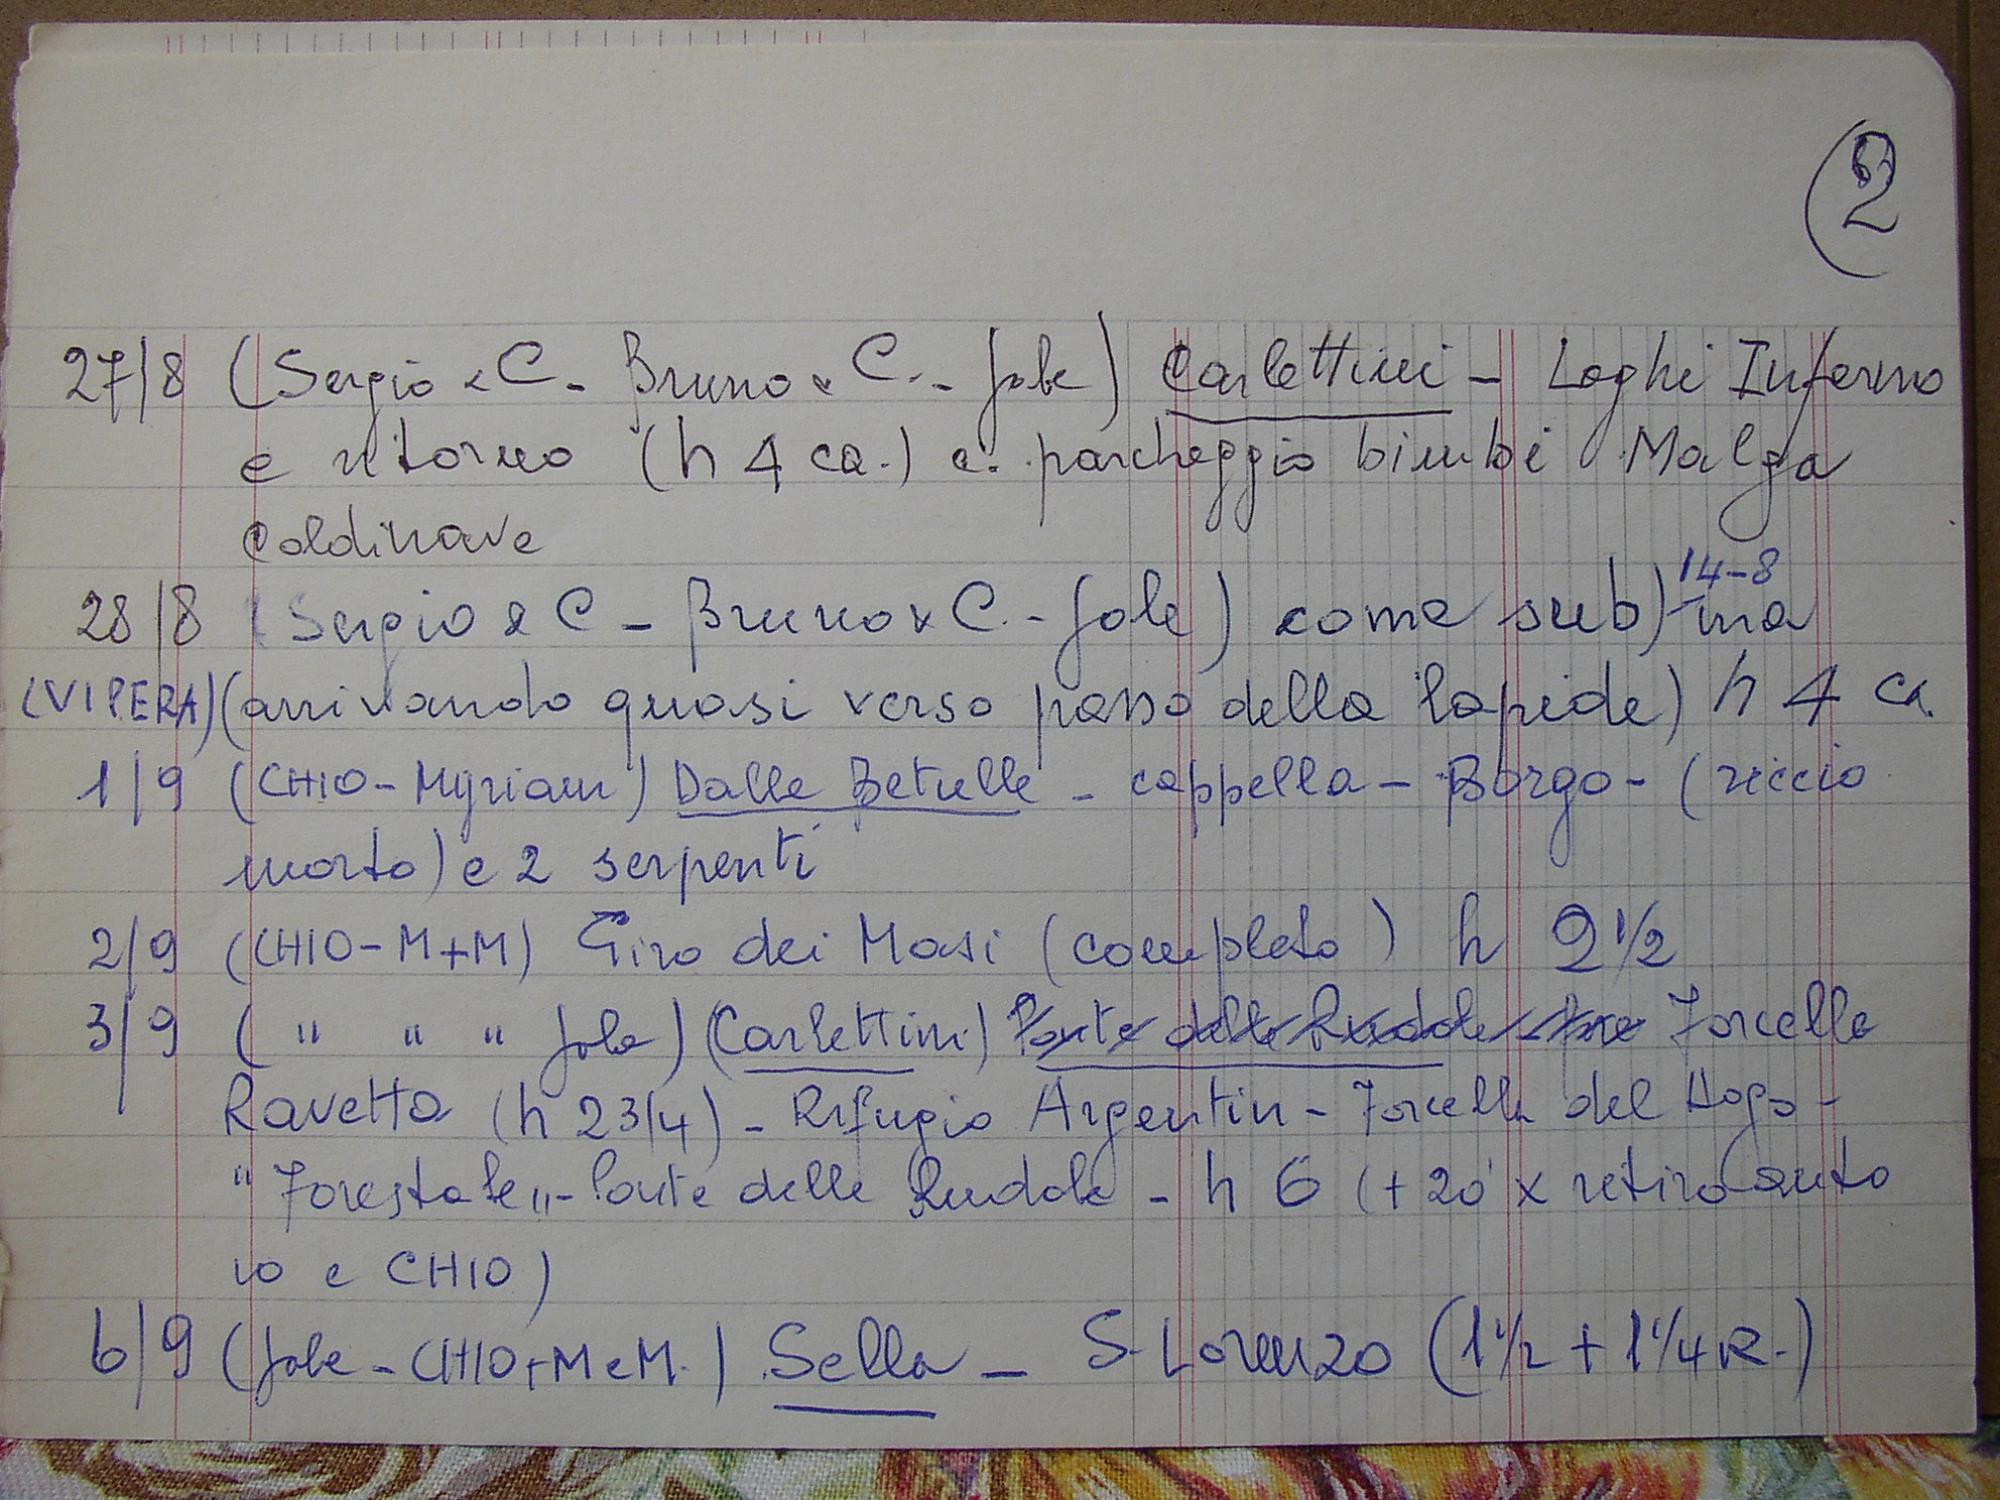 (2
27/8 (Sergio e C - Bruno e C. - Jole) Carlettini - Laghi Inferno
e ritorno (h 4 ca.) e. parcheggio bimbi Malga
Coldinave
28/8 (Sergio e C - Bruno e C. - Jole) come sub) 14-8 ma
(VIPERA) (arrivando quasi verso passo della lapide) h 4 ca.
1/9 (CHIO - Myriam) Dalle Betulle - cappella - Borgo - (riccio
morto) e 2 serpenti
2/9 (CHIO - M+M) Giro dei Masi (completo) h 2 1/2
3/9 ( " " " Jole) (Carlettini) Ponte delle Rudole - Forcella
Ravetta (h 2 3/4) - Rifugio Argentin - Forcella del Dogo -
"Forestale" - Ponte delle Rudole - h 6 (+ 20' x ritiro auto
io e CHIO)
6/9 (Jole - CHIO + M e M.) Sella - S. Lorenzo (1 1/2 + 1 1/4 R.)